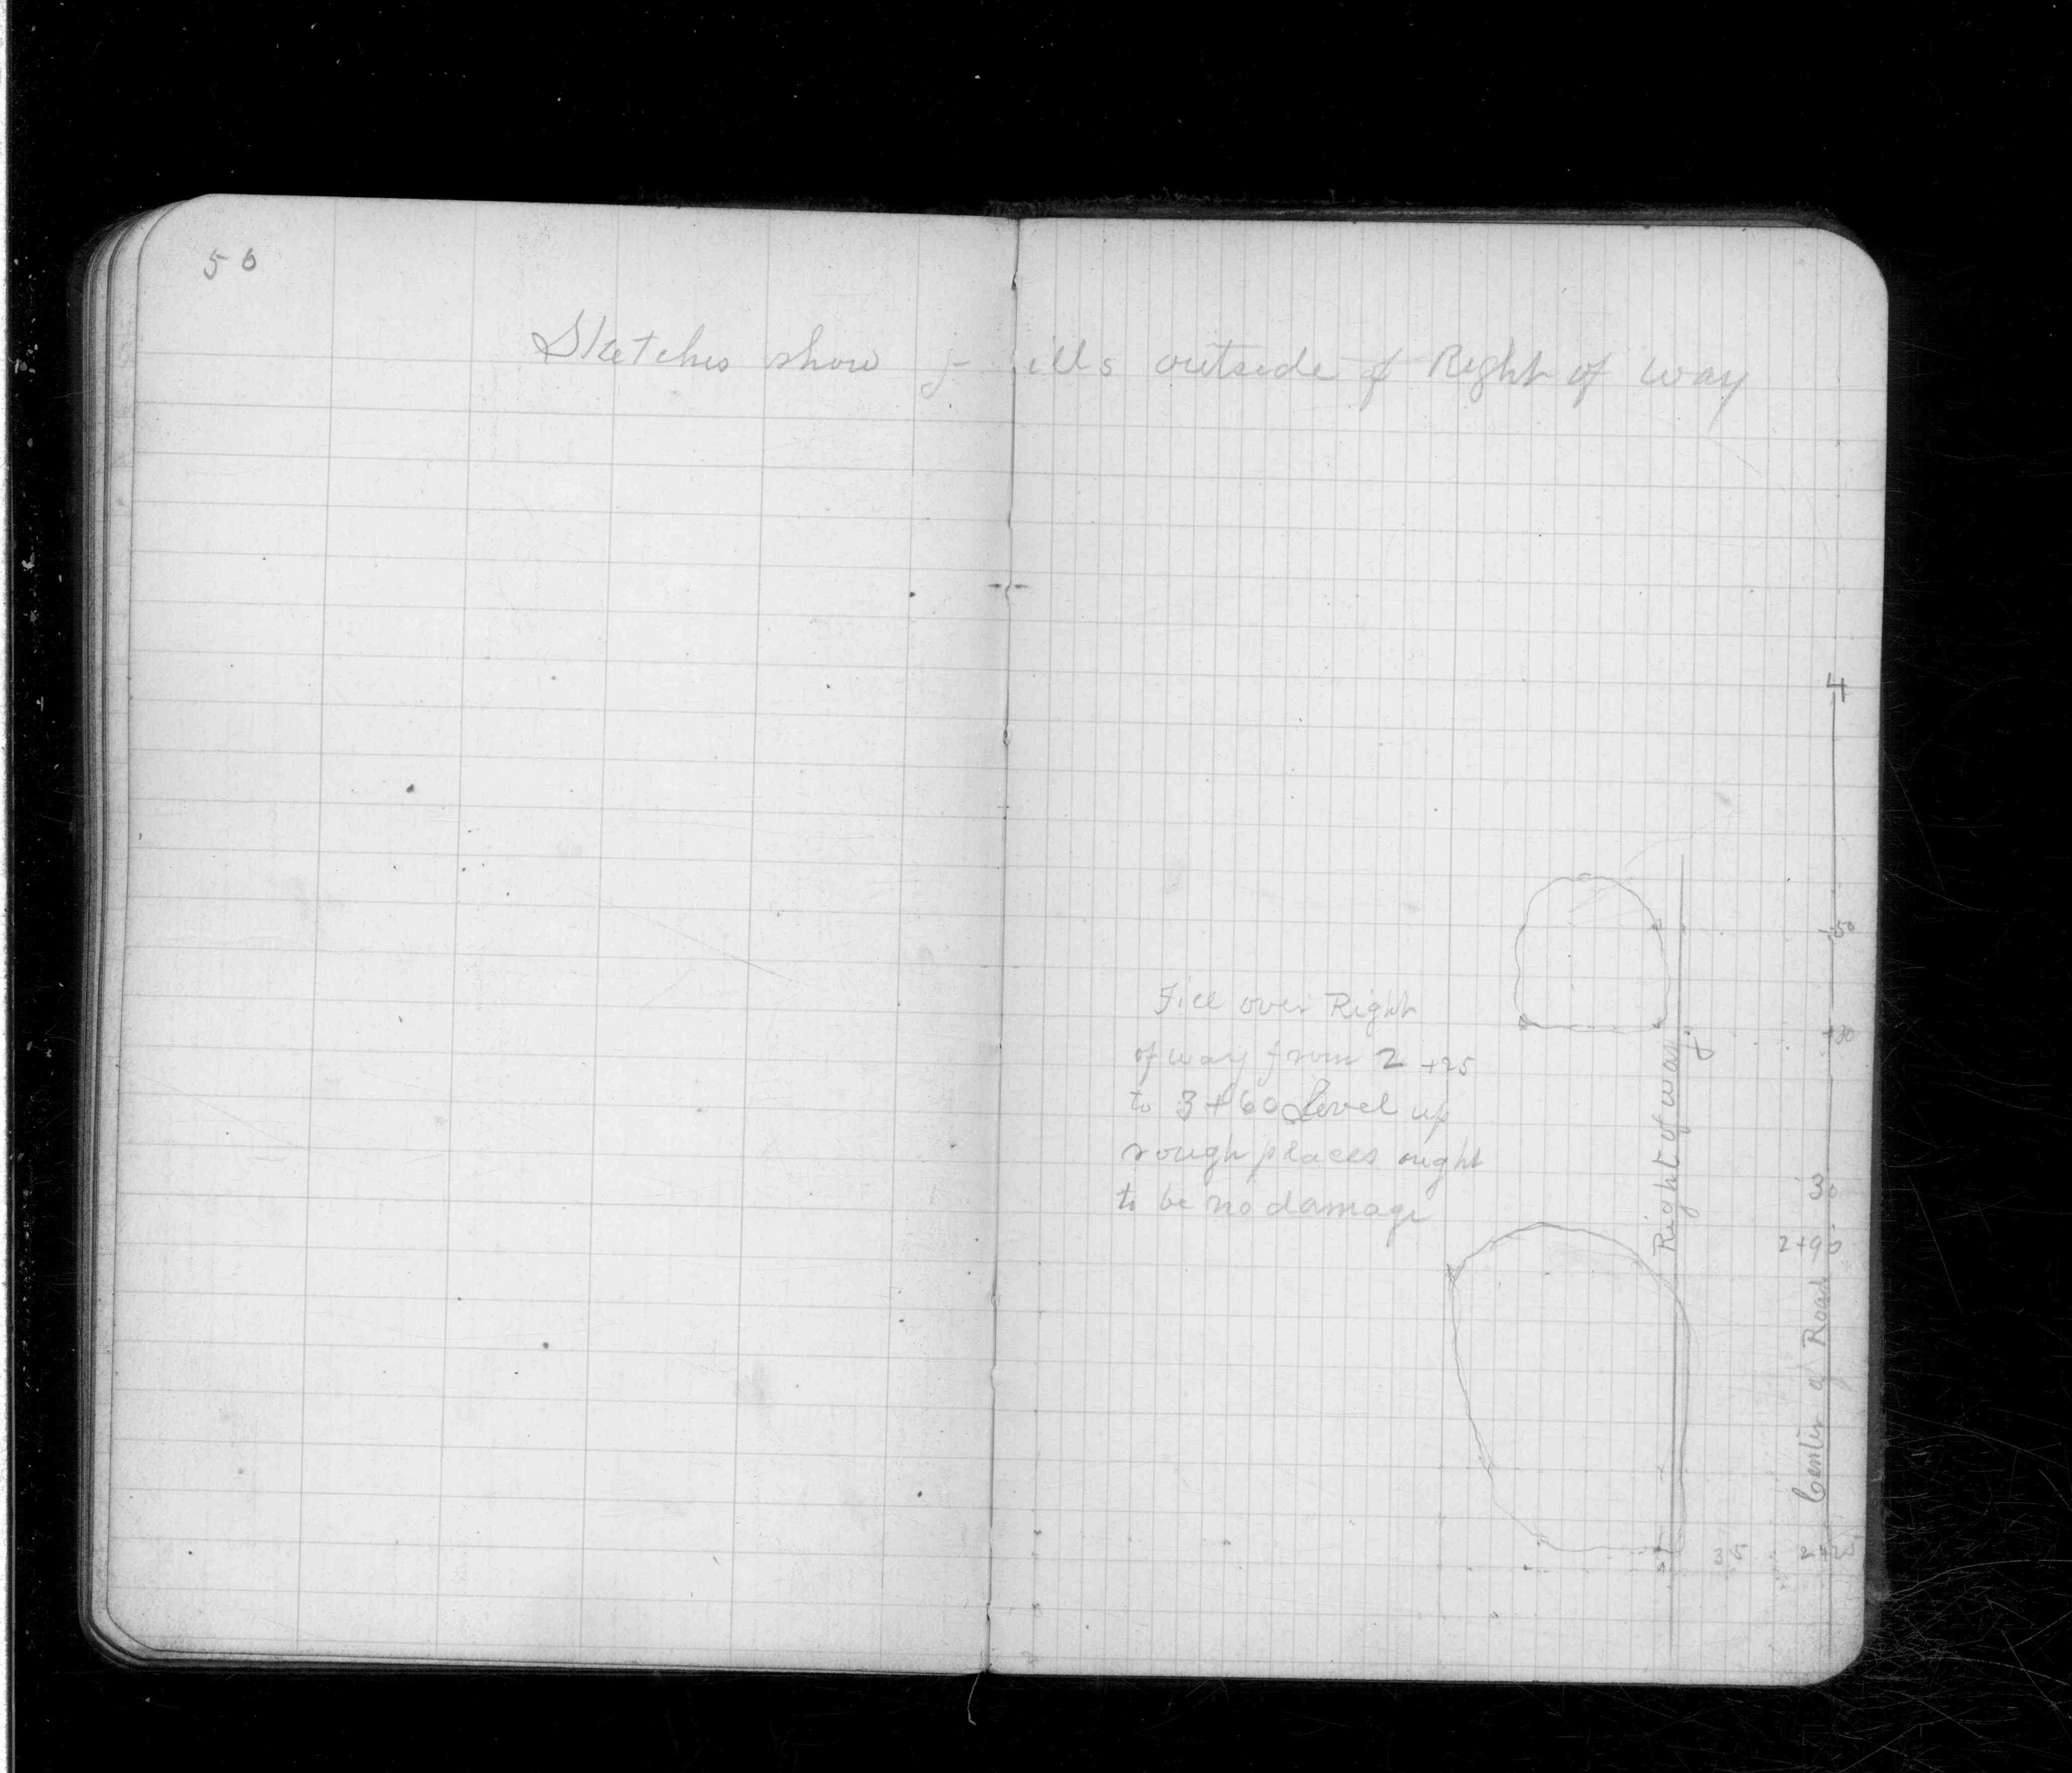 50
Sketches show fills outside of Right of way
4
50
+30
Fill over Right
of way from 2 +25
to 3+60 Level up
rough places ought
to be no damage
Right of way
30
2+90
Center of Road
2+25